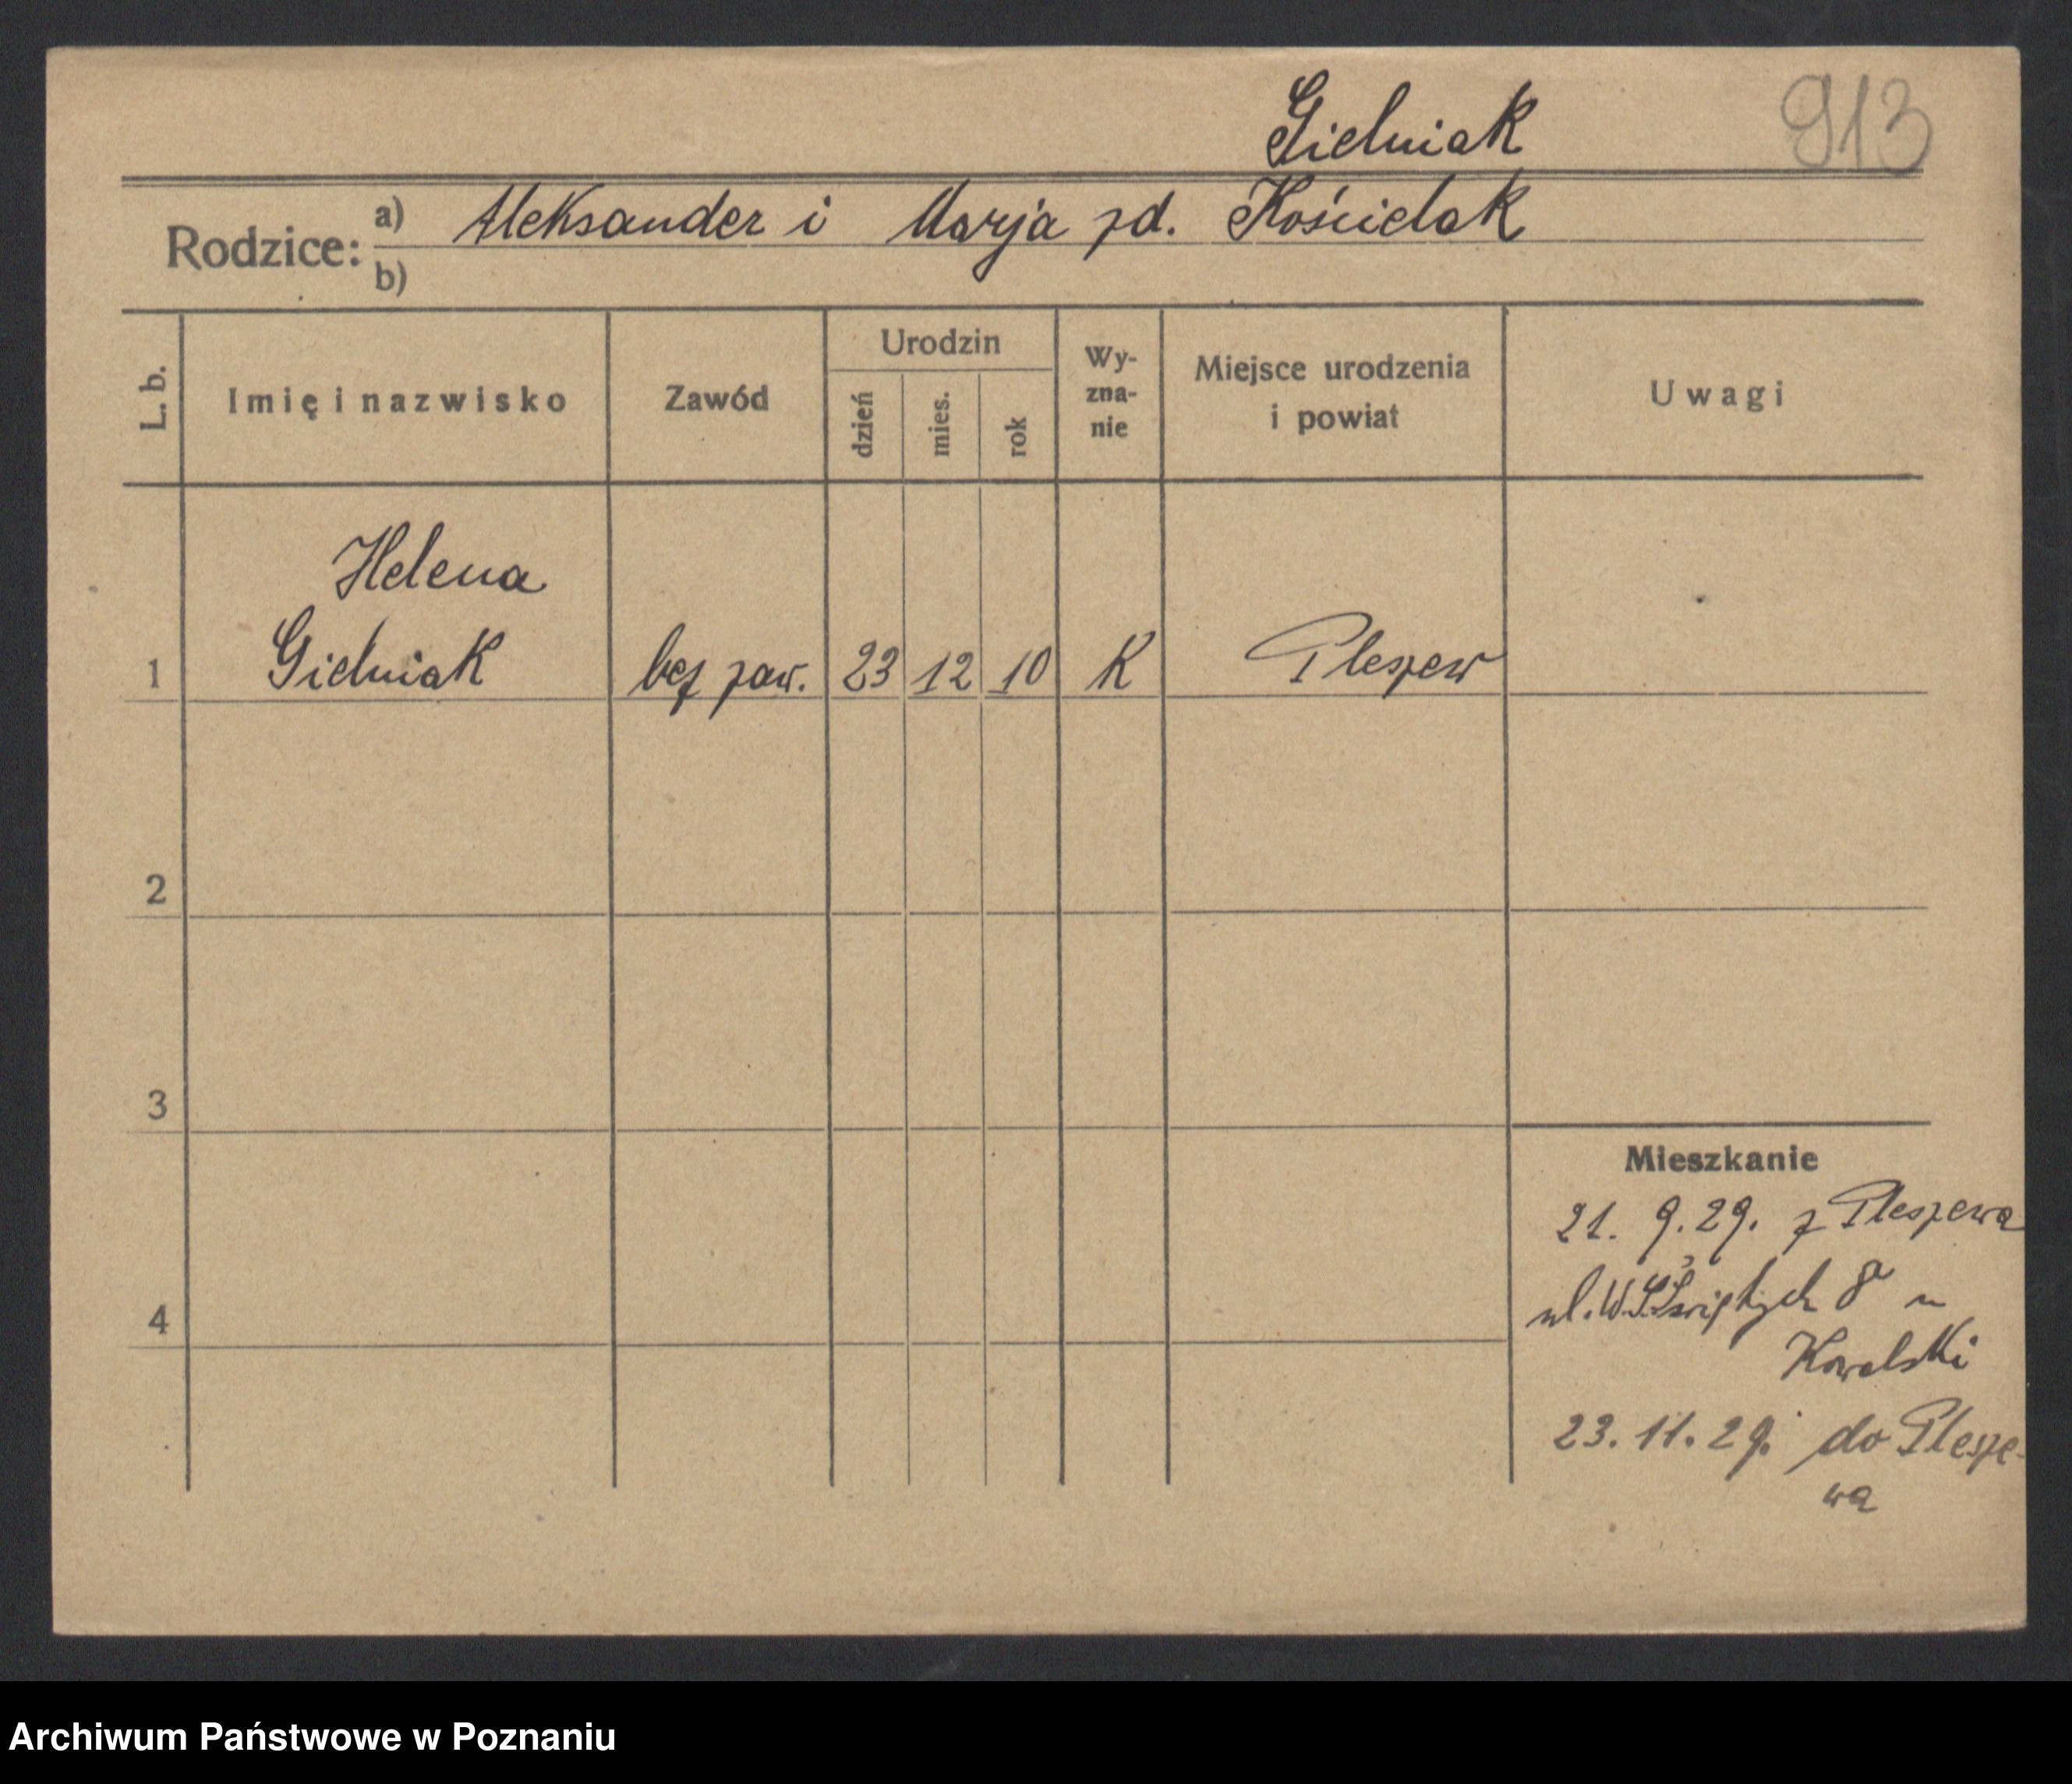 Gielniak 913
Rodzice: a) Aleksander i Marja zd. Kościelak
b)
L. b. Imię i nazwisko Zawód Urodzin dzień mies. rok Wy-zna-nie Miejsce urodzenia i powiat Uwagi
Helena
1 Gielniak bez zaw. 23 12 10 K Pleszew
2
3
Mieszkanie
21. 9. 29. z Pleszewa
4
ul. W. Świętych 8 u
Kowalski
23. 11. 29. do Plesze-
wa
Archiwum Państwowe w Poznaniu